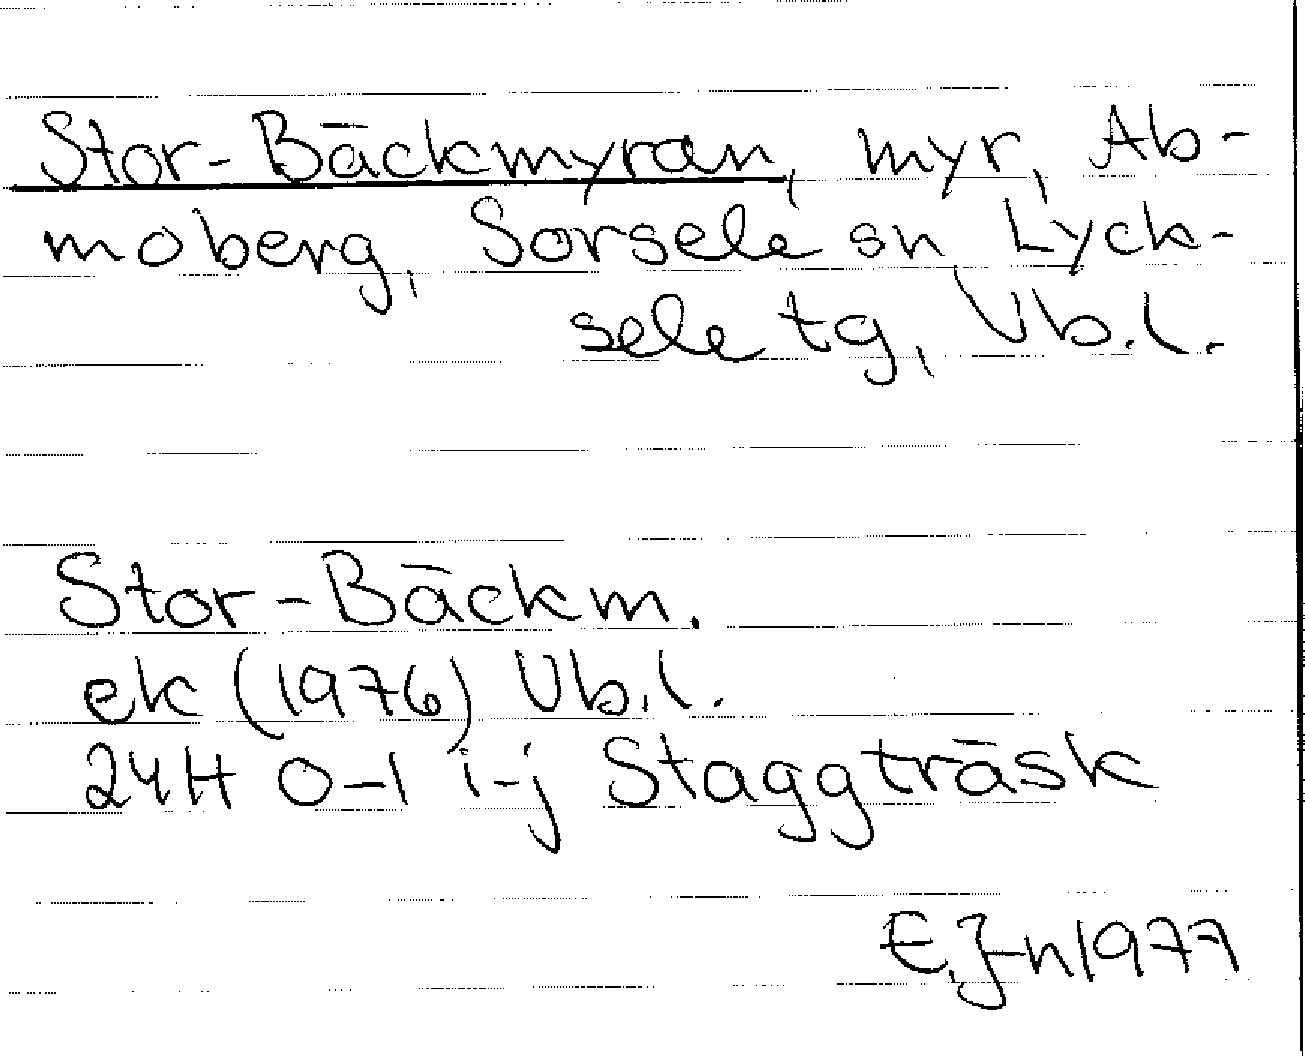 Stor-Bäckmyran, myr, Ab-
moberg, Sorsele sn, Lyck-
sele tg, Vb.l.
Stor-Bäckm.
ek (1976) Vb.l.
24H 0-1 i-j Staggträsk
E.J-n 1977